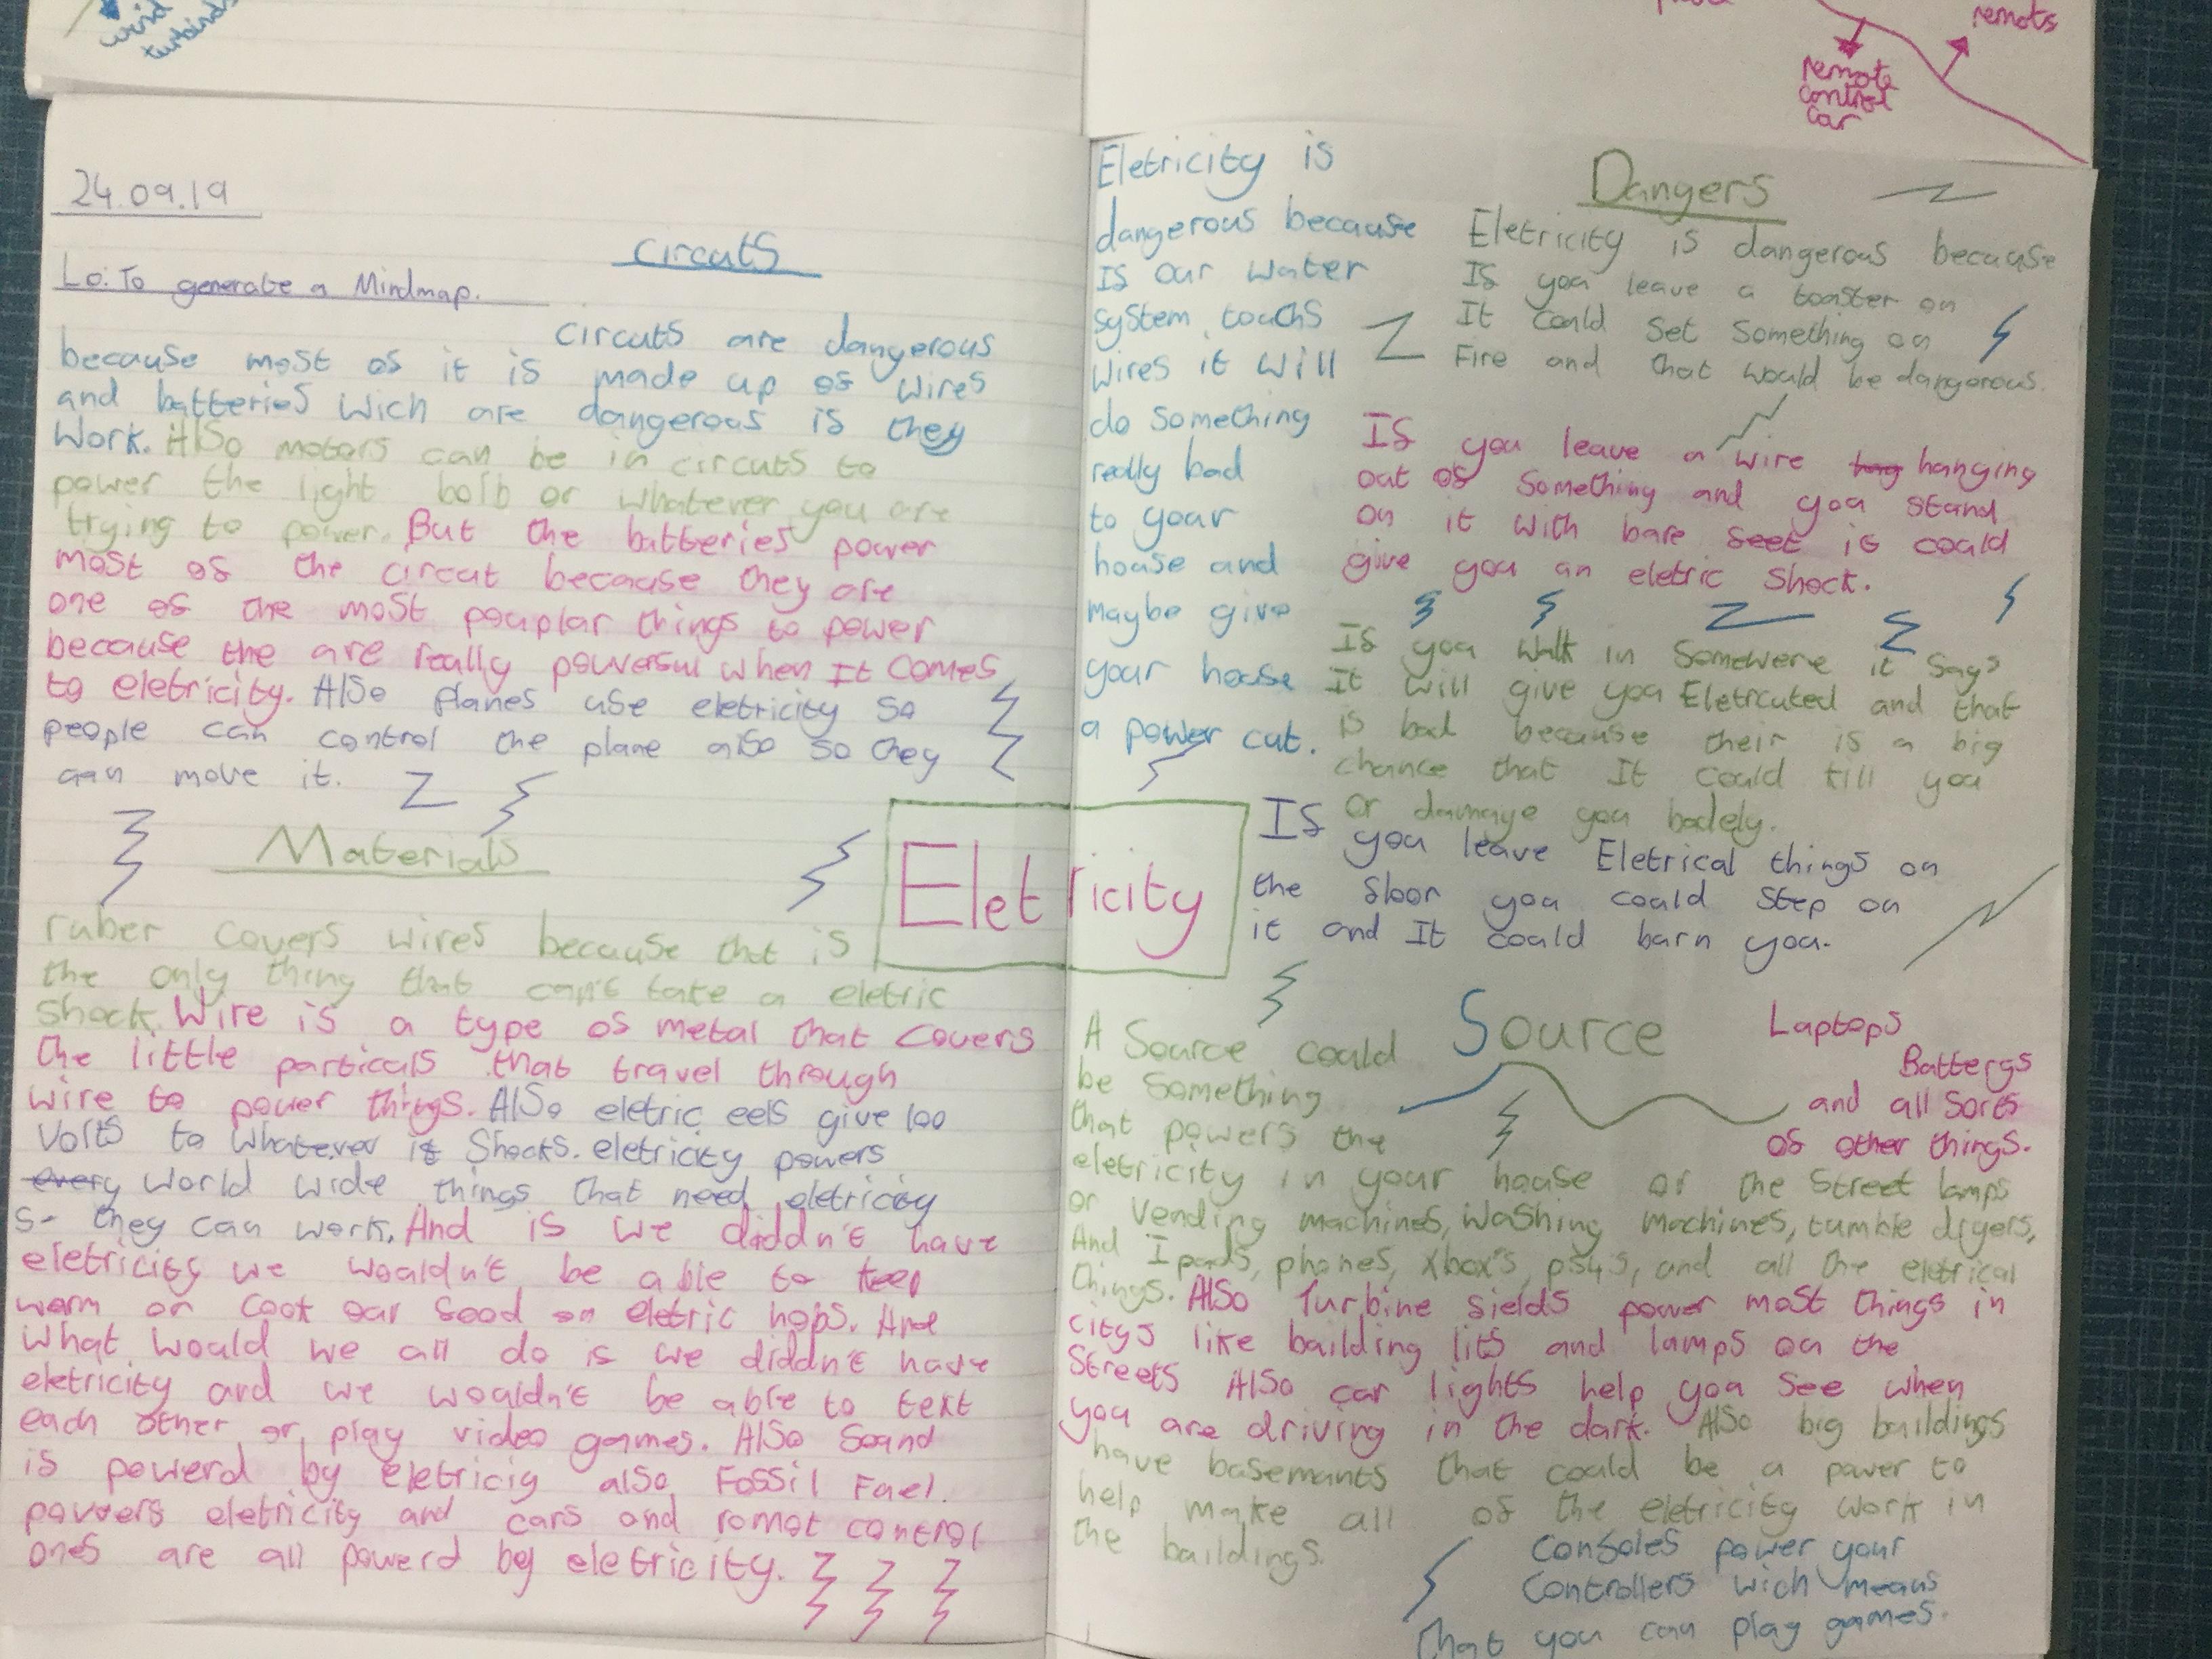 wind
turbinds
remots
remote
control
car
24.09.19
Circuts
Lo: To generate a Mindmap.
Circuts are dangerous
because most of it is made up of wires
and batteries wich are dangerous if they
work. Also motors can be in circuts to
power the light bolb or whatever you are
trying to power. But the batteries power
most of the circut because they are
one of the most pouplar things to power
because the are really powerful when It comes
to eletricity. Also planes use eletricity so
people can control the plane also so they
can move it.
Materials
ruber covers wires because that is
the only thing that can't take a eletric
shock. Wire is a type of metal that covers
the little particals that travel through
wire to power things. Also eletric eels give 100
volts to whatever it shocks. eletricity powers
every world wide things that need eletricity
so they can work. And if we diddn't have
eletricity we wouldn't be able to keep
warm or cook our food on eletric hobs. And
what would we all do if we diddn't have
eletricity and we wouldn't be able to text
each other or play video games. Also Sound
is powerd by eletricity also Fossil Fuel.
powers eletricity and cars and romot control
ones are all powerd by eletricity.
Eletricity
Eletricity is
dangerous because
If our water
system touchs
wires it will
do something
really bad
to your
house and
maybe give
your house
a power cut.
Dangers
Eletricity is dangerous because
If you leave a toaster on
It could set something on
Fire and that would be dangerous.
If you leave a wire hang hanging
out of something and you stand
on it with bare feet it could
give you an eletric shock.
If you walk in somewere it says
It will give you Eletrcuted and that
is bad because their is a big
chance that It could kill you
or damage you badely.
If you leave Eletrical things on
the floor you could step on
it and It could burn you.
Source
A Source could
be something
that powers the
eletricity in your house or the street lamps
or vending machines, washing machines, tumble dryers,
And Ipads, phones, xbox's, ps4's, and all the eletrical
things. Also Turbine fields power most things in
citys like building lits and lamps on the
streets Also car lights help you see when
you are driving in the dark. Also big buildings
have basemants that could be a power to
help make all of the eletricity work in
the buildings.
Laptops
Batterys
and all sorts
of other things.
Consoles power your
controllers wich means
that you can play games.